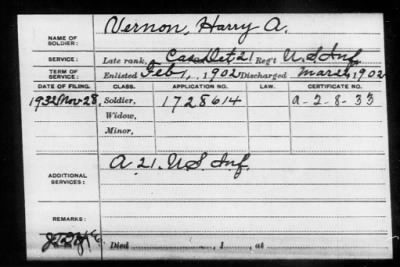 NAME OF SOLDIER: Vernon, Harry A.
SERVICE: Late rank, Cas Det 21 Reg't U S Inf
TERM OF SERVICE: Enlisted Feb 1, 1902 Discharged March, 1902
DATE OF FILING. CLASS. APPLICATION NO. LAW. CERTIFICATE NO.
1932 Nov 28, Soldier, 1728614 A-2-8-33
Widow,
Minor,
ADDITIONAL SERVICES: A 21. U.S. Inf.
REMARKS:
Died , 1 , at